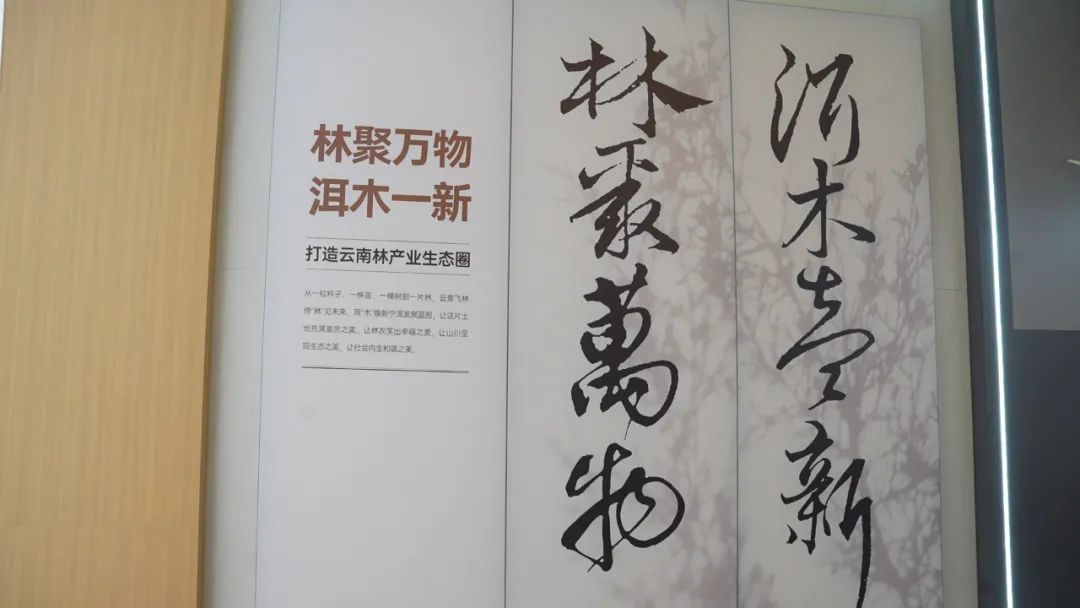 林聚万物
洱木一新
打造云南林产业生态圈
从一粒种子、一株苗、一棵树到一片林，云景飞林
绮“林”见未来，用“木”焕新宁洱发展蓝图，让这片土
地充满富庶之美，让林农笑出幸福之美，让山川呈
现生态之美，让社会内生和谐之美。
林聚萬物
洱木壹新